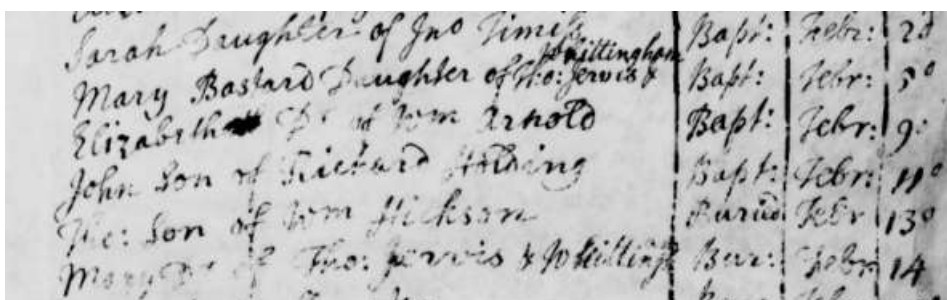 Sarah Daughter of Jno Timis Bapt: Febr: 2d
Whittingham
Mary Bastard Daughter of Tho: Jervis & Bapt: Febr: 5o
Elizabeth Dr of Wm Arnold Bapt: Febr: 9o
John Son of Richard Holding Bapt: Febr: 11o
Tho: Son of Wm Hickson Buried Febr 13o
Mary Dr of Tho: Jervis & Whitting Bur: Febr 14